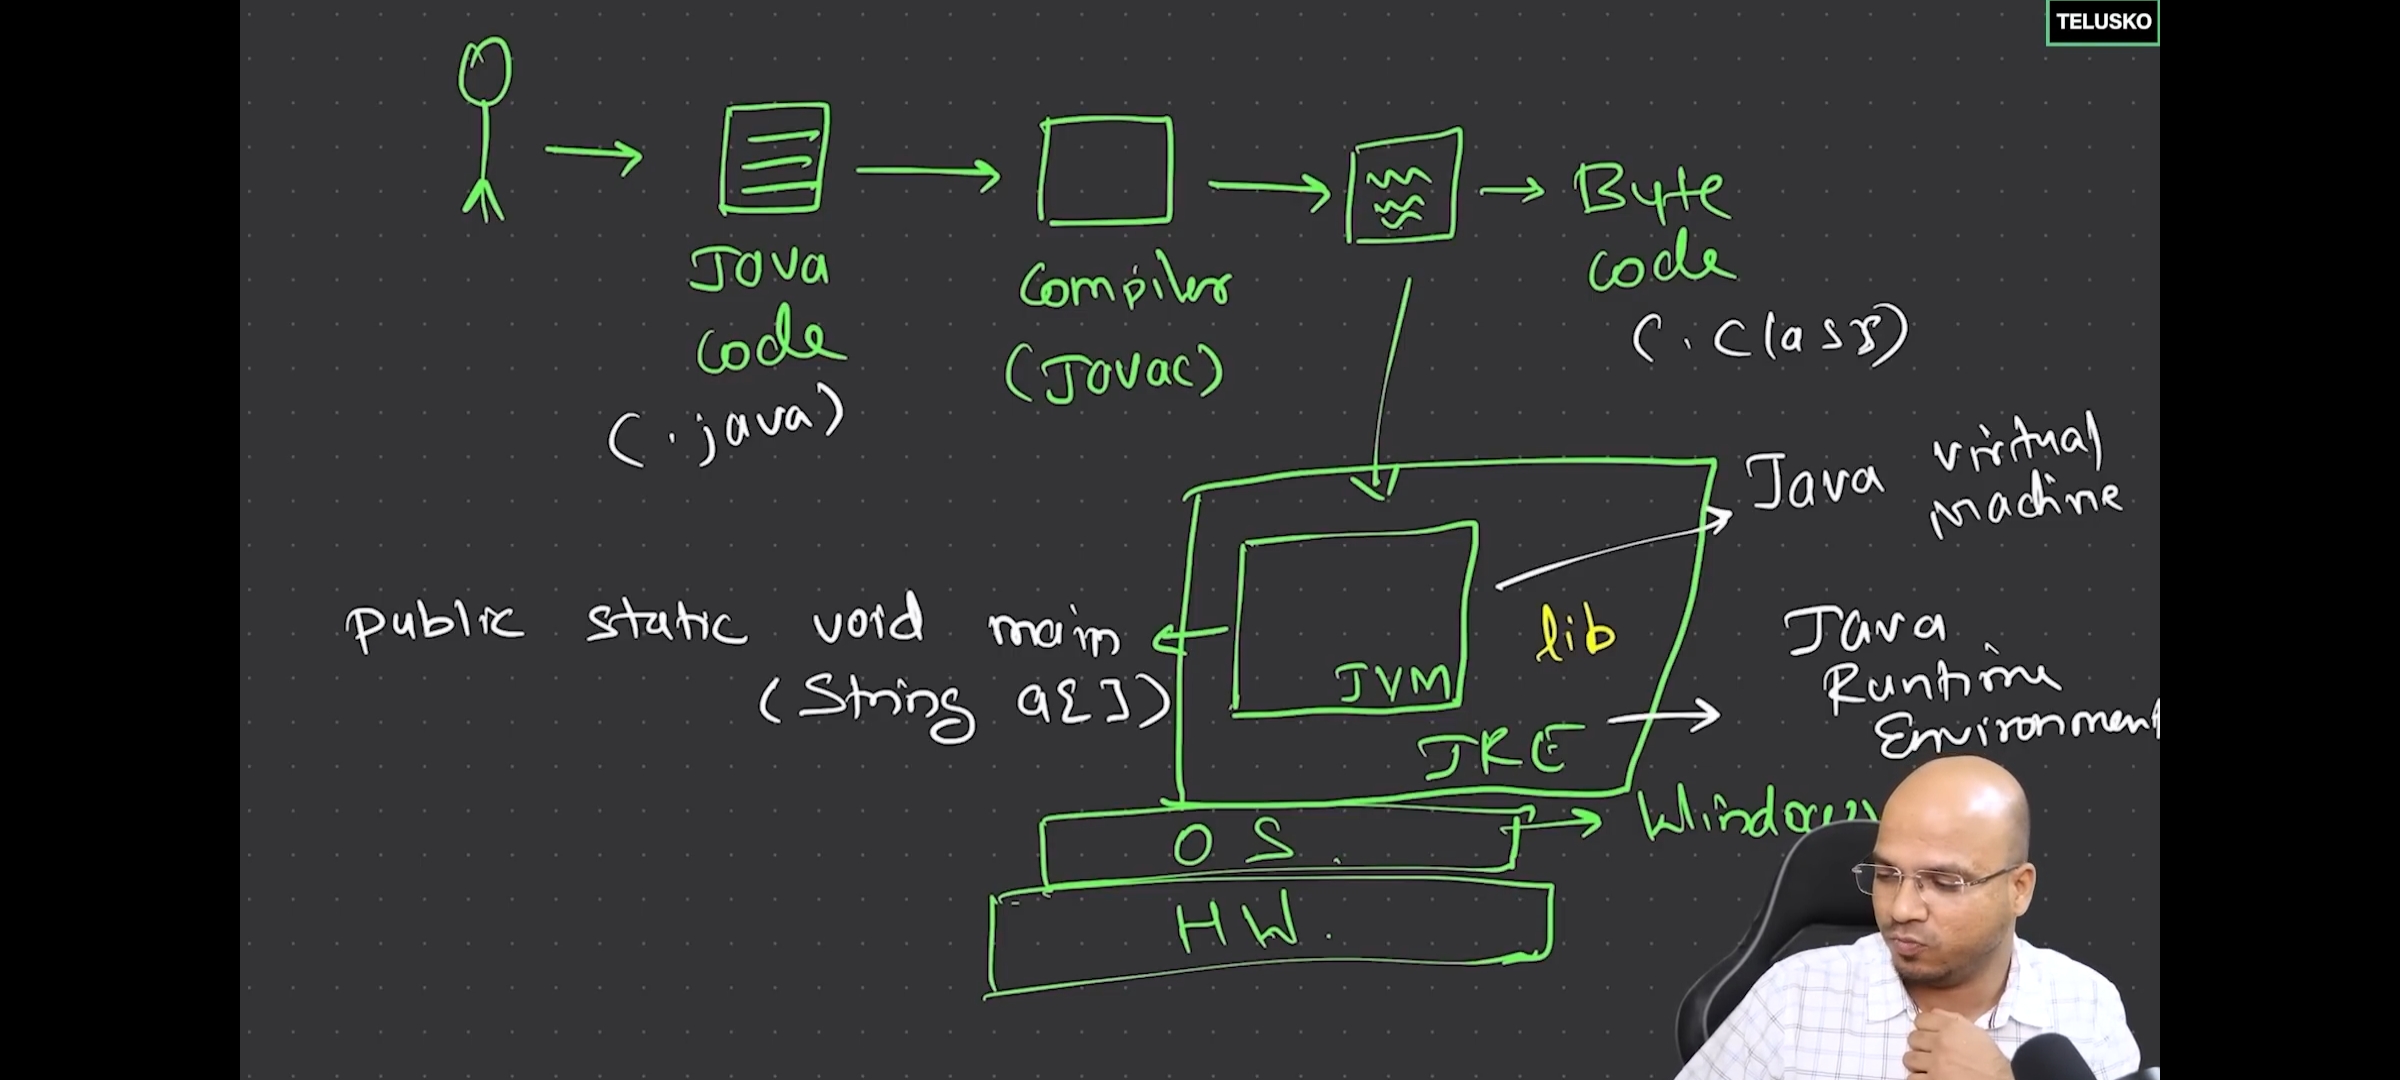 TELUSKO
Java
code
(.java)
Compiler
(Javac)
Byte
code
(.class)
Java virtual
Machine
public static void main
(String a[])
lib
JVM
Java
Runtime
Environment
JRE
OS
Windows
HW